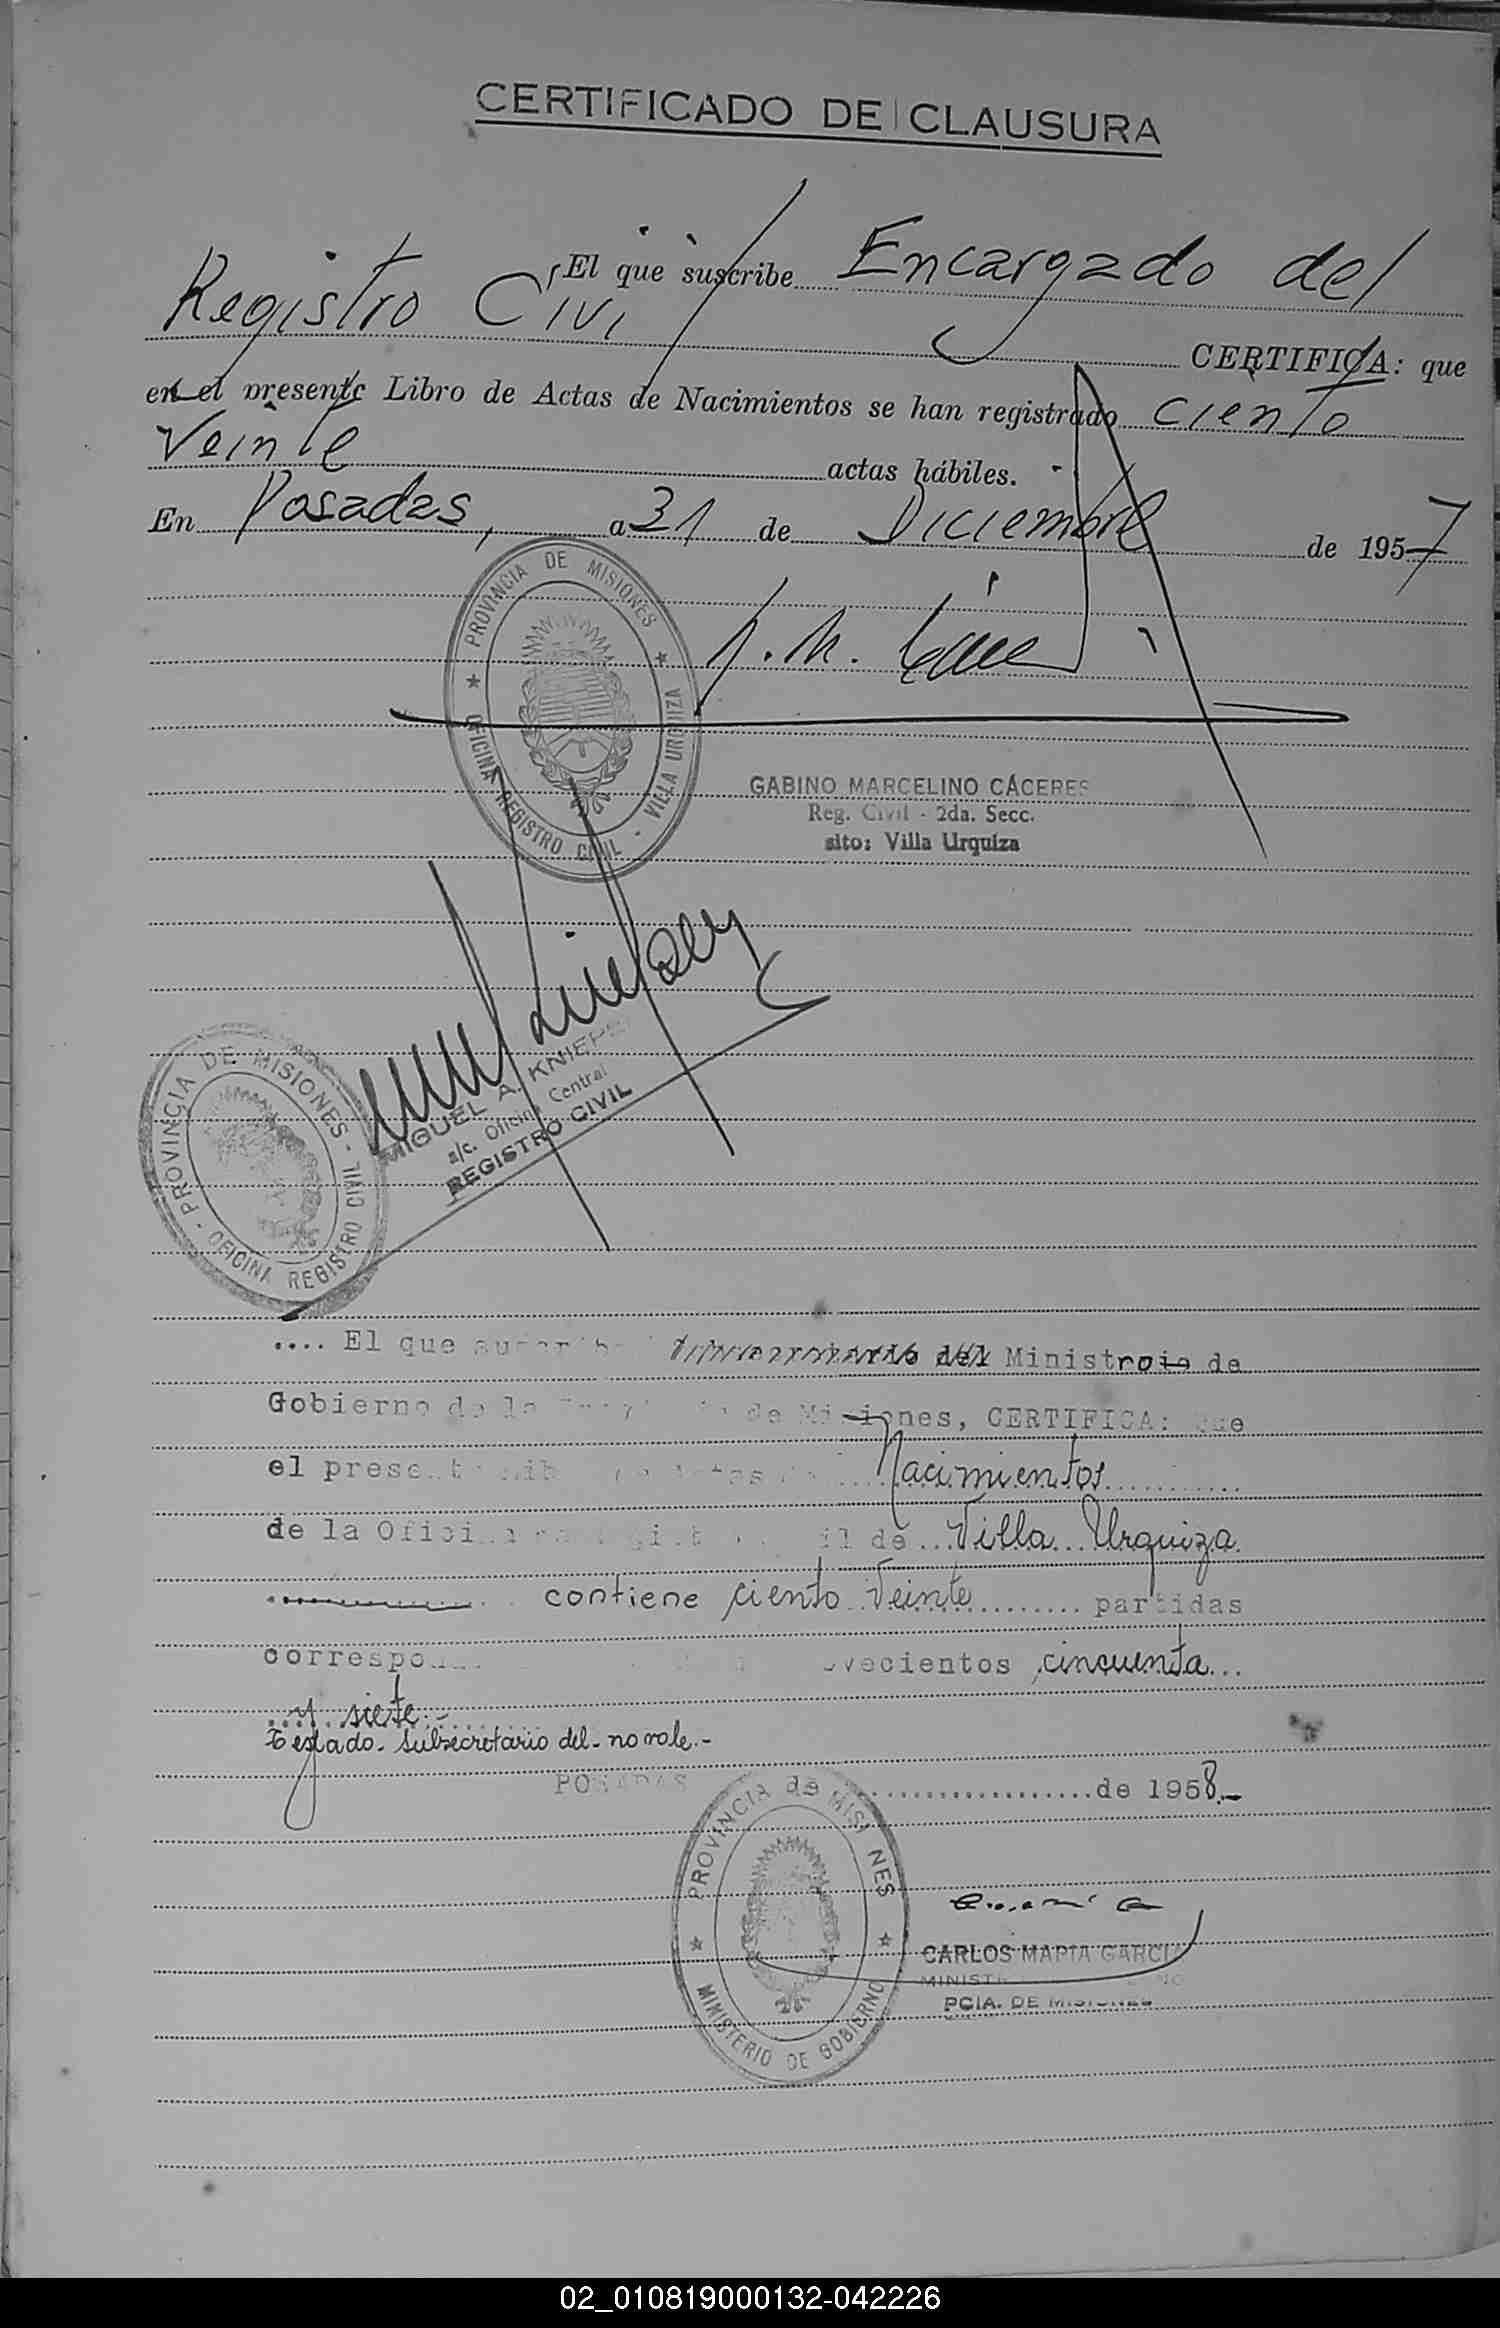 CERTIFICADO DE CLAUSURA
El que suscribe Encargado del
Registro Civil
CERTIFICA: que
en el presente Libro de Actas de Nacimientos se han registrado Ciento
Veinte actas hábiles.
En Posadas, a 31 de Diciembre de 1957
PROVINCIA DE MISIONES
OFICINA REGISTRO CIVIL - VILLA URQUIZA
GABINO MARCELINO CÁCERES
Reg. Civil - 2da. Secc.
sito: Villa Urquiza
MIGUEL A.
a/c. Oficina Central
REGISTRO CIVIL
PROVINCIA DE MISIONES - OFICINA REGISTRO CIVIL -
.... El que Ministro de
Gobierno de la de Misiones, CERTIFICA: que
el presente Nacimientos
de la Oficina de Villa Urquiza.
contiene ciento Veinte partidas
cincuenta...
y siete.-
Testado- Subsecretario del- no vale.-
POSADAS de 1958.-
PROVINCIA de MISIONES
MINISTERIO DE GOBIERNO
CARLOS MARIA GARCIA
PCIA. DE MISIONES
02_010819000132-042226